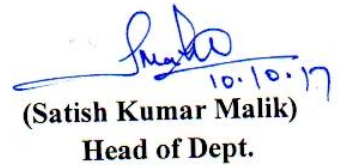 10.10.17
(Satish Kumar Malik)
Head of Dept.